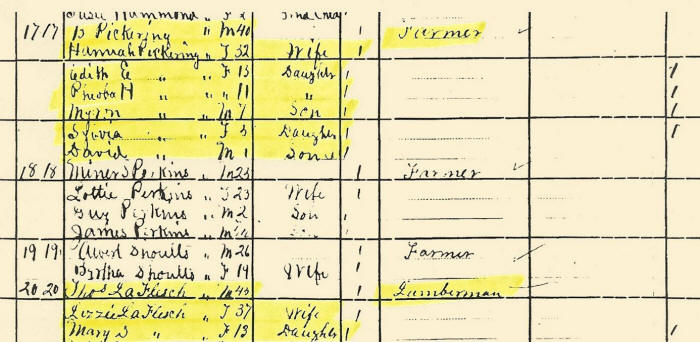 Susie Hammond " F 2
17 17 B Pickering " M 40 1 Farmer
Hannah Pickering " F 32 Wife 1
Edith E " " F 13 Daughter 1 1
Phoeba H " " " 11 " 1 1
Myrin " " M 7 Son 1 1
Sylvia " " F 5 Daughter 1 1
David " M 1 Son 1
18 18 Miner Perkins " M 25 1 Farmer
Lottie Perkins " F 23 Wife 1
Guy Perkins " M 2 Son 1
James Perkins "
19 19 Albert Spoults " M 26 1 Farmer
Bertha Spoults " F 19 Wife 1
20 20 Thos LaFlesch " M 45 1 Lumberman
Lizzie LaFlesch " F 37 Wife 1
Mary S " " F 13 Daughter 1 1